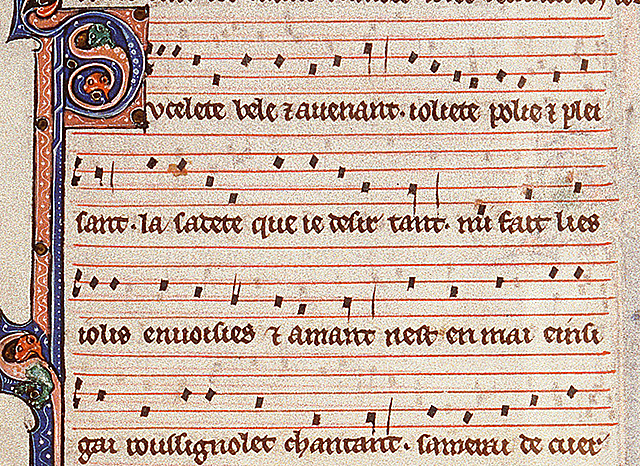 Pucelete bele ⁊ auenant · ioliete polie ⁊ plei
sant · la sadete que ie desir tant · mi fait lies
iolis enuoisies ⁊ amant nest en mai einsi
gai roussignolet chantant · samerai de cuer